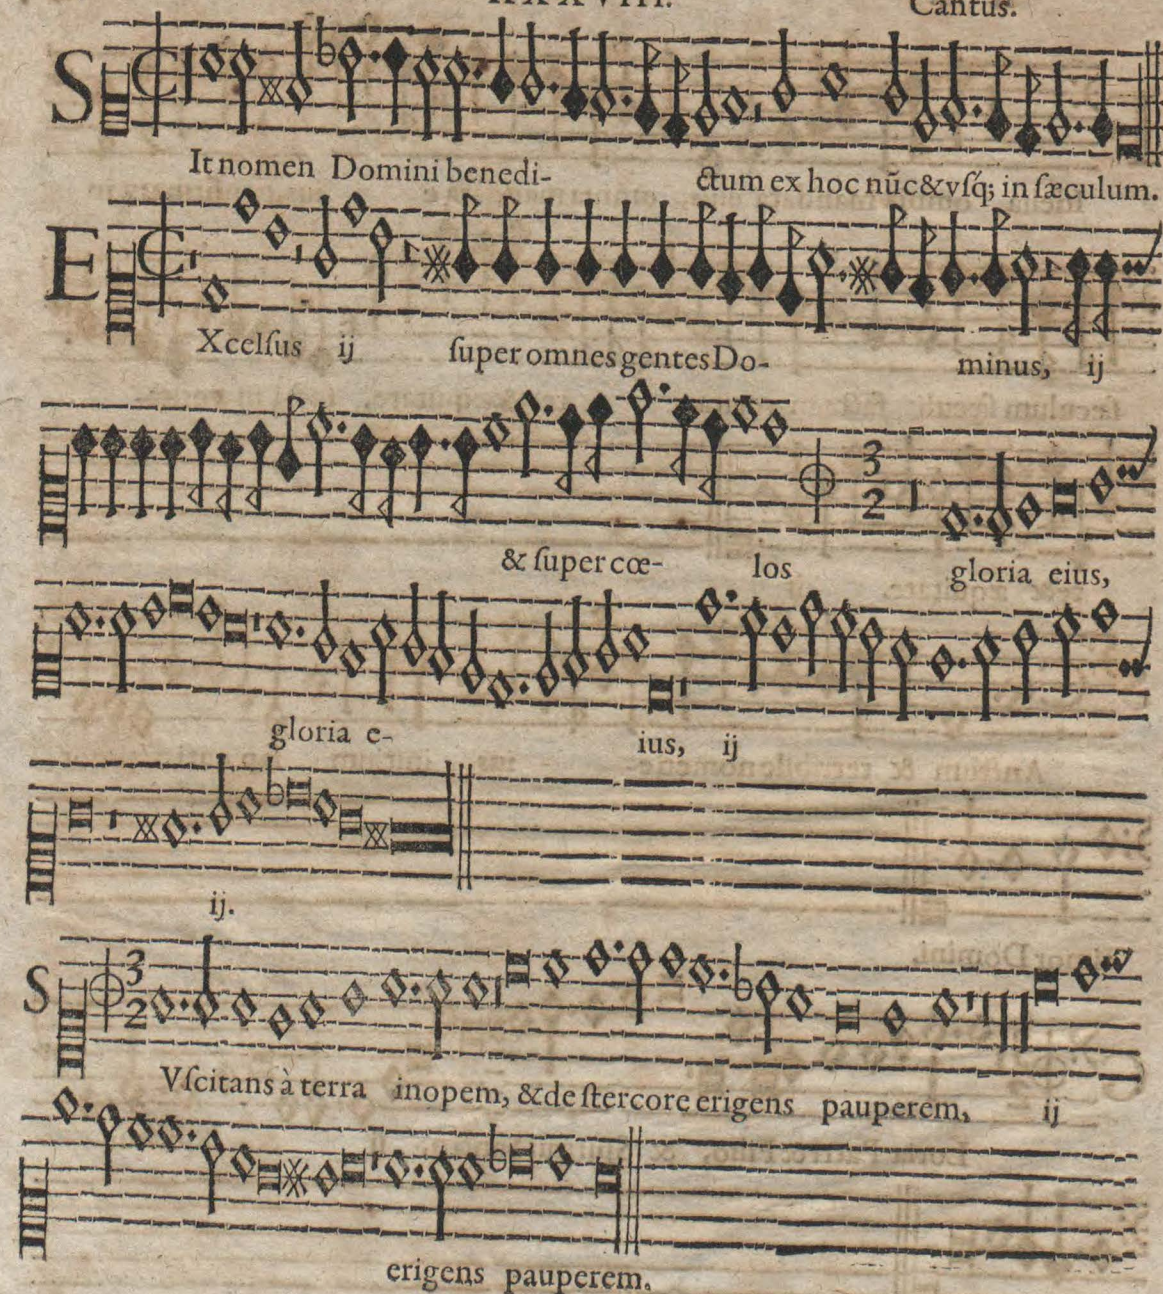 Cantus.
SIt nomen Domini benedi- ctum ex hoc nūc&vſq́; in ſæculum.
EXcelſus ij ſuper omnes gentes Do- minus, ij
& ſuper cœ- los gloria eius,
gloria e- ius, ij
ij.
SVſcitans à terra inopem, &de ſtercore erigens pauperem, ij
erigens pauperem.